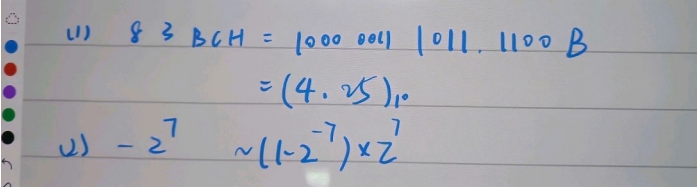 (1) 83BCH = 1000 0011 1011.1100B
=(4.25)₁₀
(2) -2⁷ ~(1-2⁻⁷)×2⁷